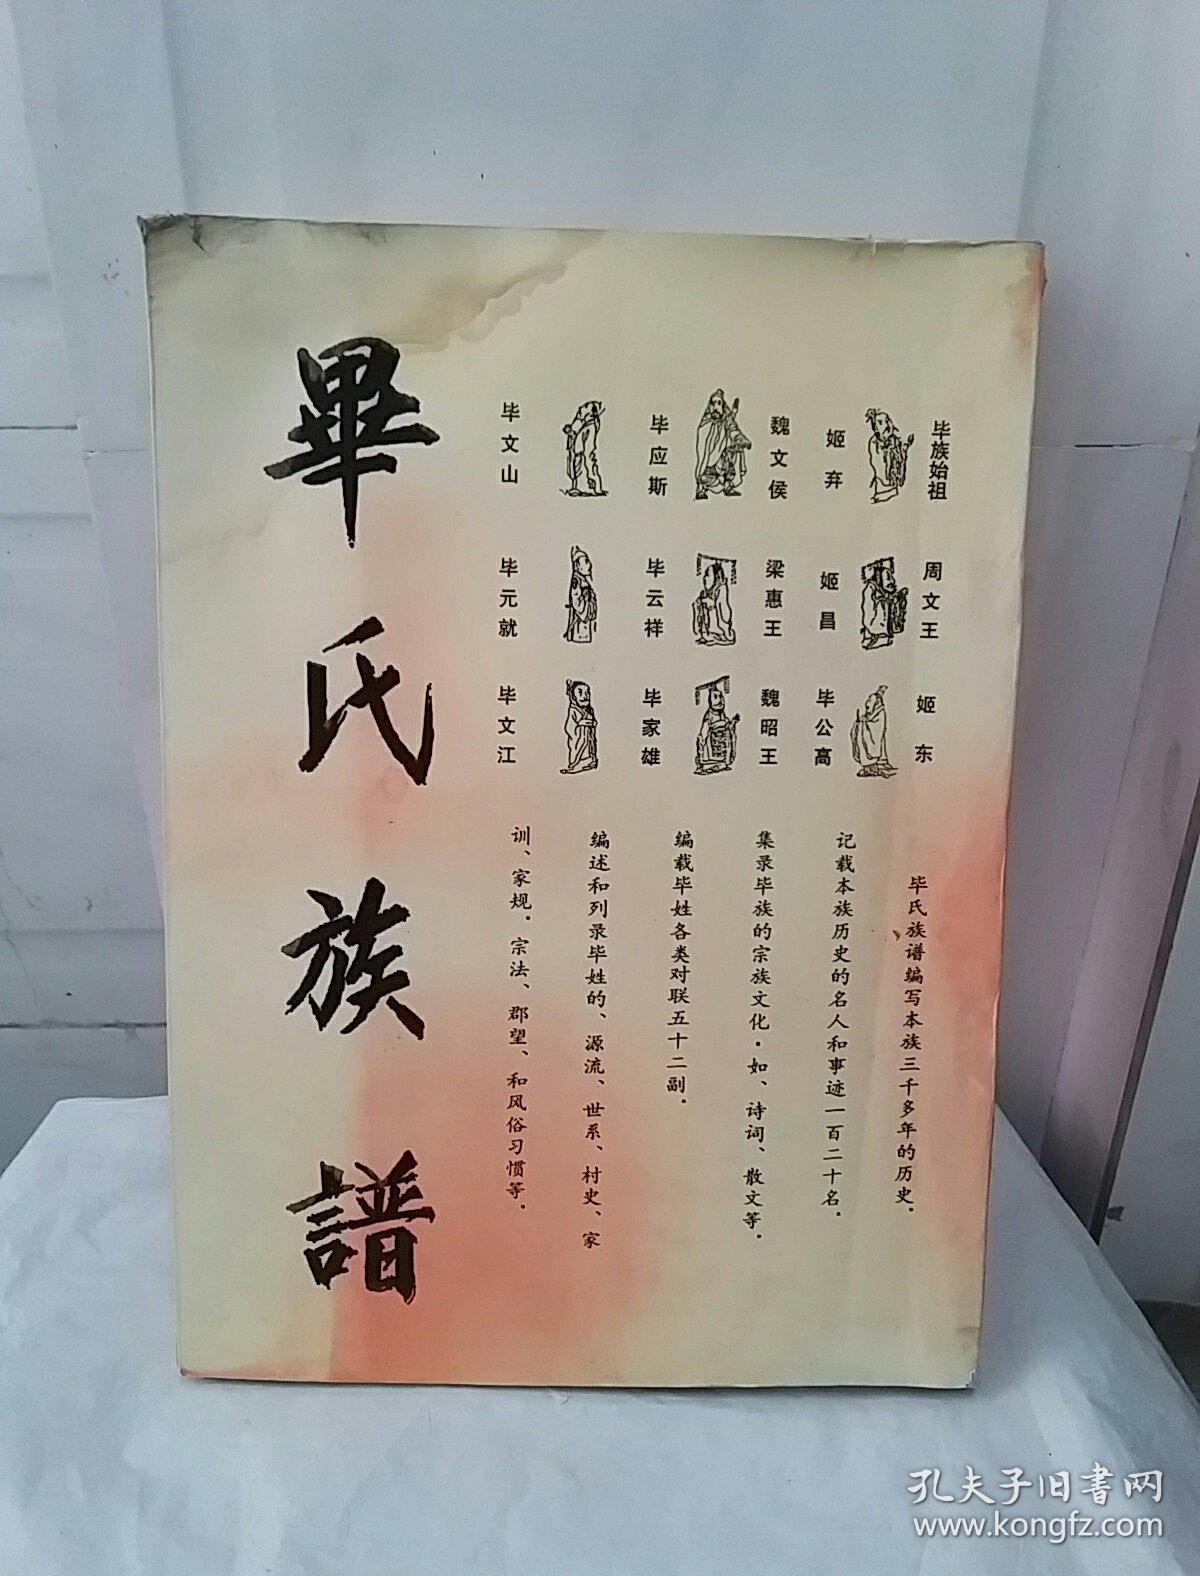 畢氏族譜
毕族始祖
姬弃
魏文侯
毕应斯
毕文山
周文王
姬昌
梁惠王
毕云祥
毕元就
姬东
毕公高
魏昭王
毕家雄
毕文江
毕氏族谱编写本族三千多年的历史.
记载本族历史的名人和事迹一百二十名.
集录毕族的宗族文化·如、诗词、散文等.
编载毕姓各类对联五十二副.
编述和列录毕姓的、源流、世系、村史、家
训、家规.宗法、郡望、和风俗习惯等.
孔夫子旧书网
www.kongfz.com